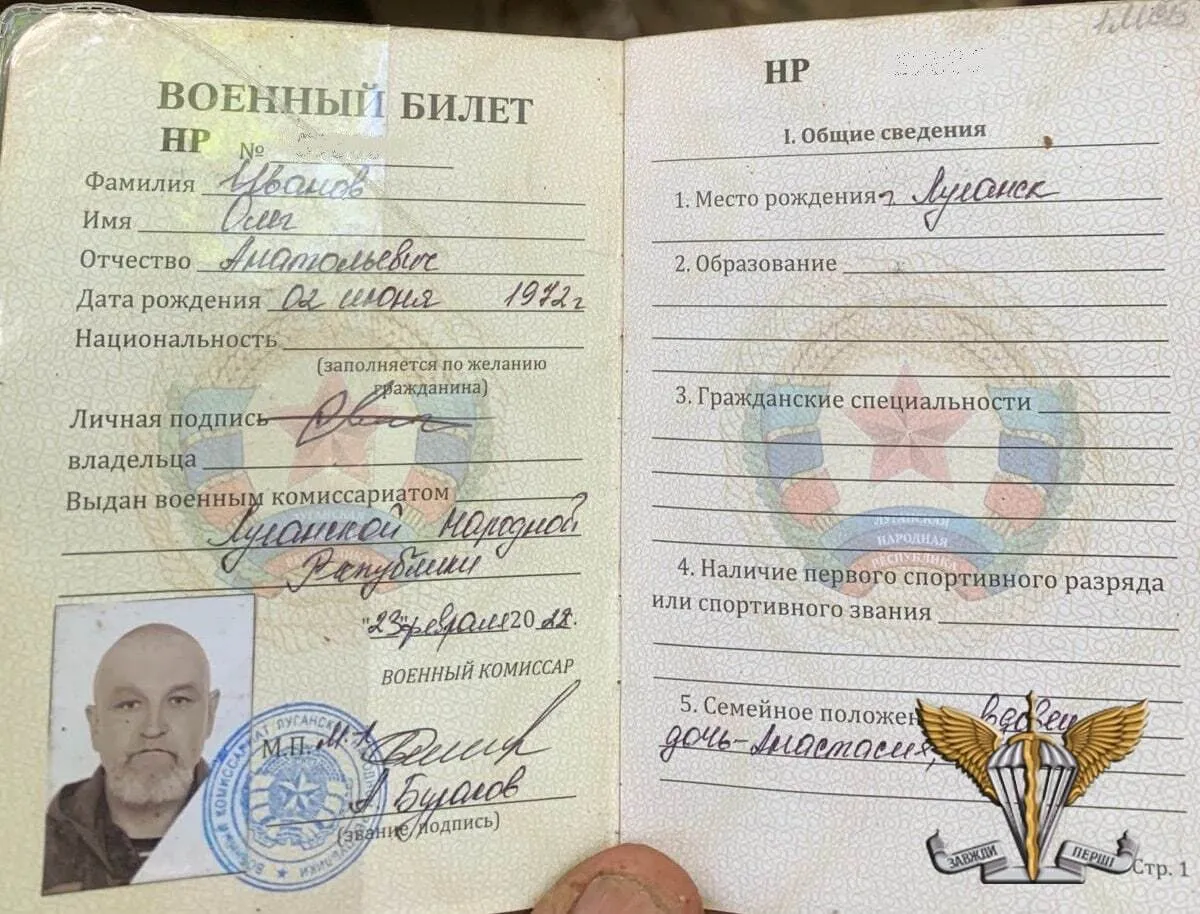 ВОЕННЫЙ БИЛЕТ
НР №
Фамилия Иванов
Имя Олег
Отчество Анатольевич
Дата рождения 02 июня 1972 г
Национальность
(заполняется по желанию
гражданина)
Личная подпись
владельца
Выдан военным комиссариатом
Луганской Народной
Республики
"23" февраля 2022.
ВОЕННЫЙ КОМИССАР
М.П.
(звание, подпись)
НР
I. Общие сведения
1. Место рождения г. Луганск
2. Образование
3. Гражданские специальности
ЛУГАНСКАЯ
НАРОДНАЯ
РЕСПУБЛИКА
4. Наличие первого спортивного разряда
или спортивного звания
5. Семейное положен вдовец
дочь-Анастасия,
ЗАВЖДИ ПЕРШІ
Стр. 1